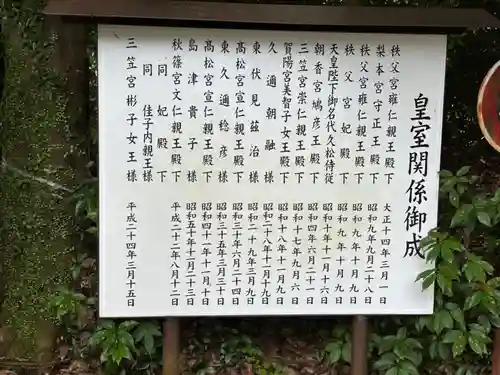 皇室関係御成
秩父宮雍仁親王殿下 大正十四年三月一日
梨本宮守正王殿下 昭和九年九月二十八日
秩父宮雍仁親王殿下 昭和九年十月九日
秩父宮妃殿下 昭和九年十月九日
天皇陛下御名代久松侍従 昭和十年十一月十六日
朝香宮鳩彦王殿下 昭和四年六月二十一日
三笠宮崇仁親王殿下 昭和十七年九月六日
賀陽宮美智子女王殿下 昭和十八年十一月九日
久邇朝融様 昭和二十八年十一月九日
東伏見慈洽様 昭和二十九年三月九日
高松宮宣仁親王殿下 昭和三十年六月二十四日
東久邇稔彦様 昭和三十五年三月三十日
高松宮宣仁親王殿下 昭和四十一年十一月十日
島津貴子様 昭和五十年十一月二十三日
秋篠宮文仁親王殿下 平成二十二年八月十二日
同妃殿下
同佳子内親王様
三笠宮彬子女王様 平成二十四年三月十五日